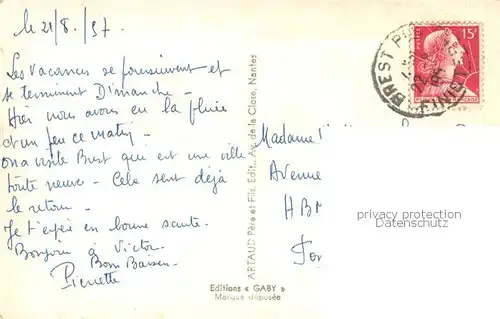 le 21/8./57.
Les vacances se poursuivent et
se terminent Dimanche -
Hier nous avons eu la pluie
et un peu ce matin.
On a visité Brest qui est une ville
toute neuve - Cela sent déjà
le retour.
Je t'espère en bonne santé.
Bonjour à Victor.
Bons Baisers.
Pierrette
ARTAUD Père et Fils, Edit., Av. de la Close, Nantes
Editions « GABY »
Marque déposée
15F
POSTES
BREST
FINISTERE
Madame
Avenue
HBM
privacy protection
Datenschutz